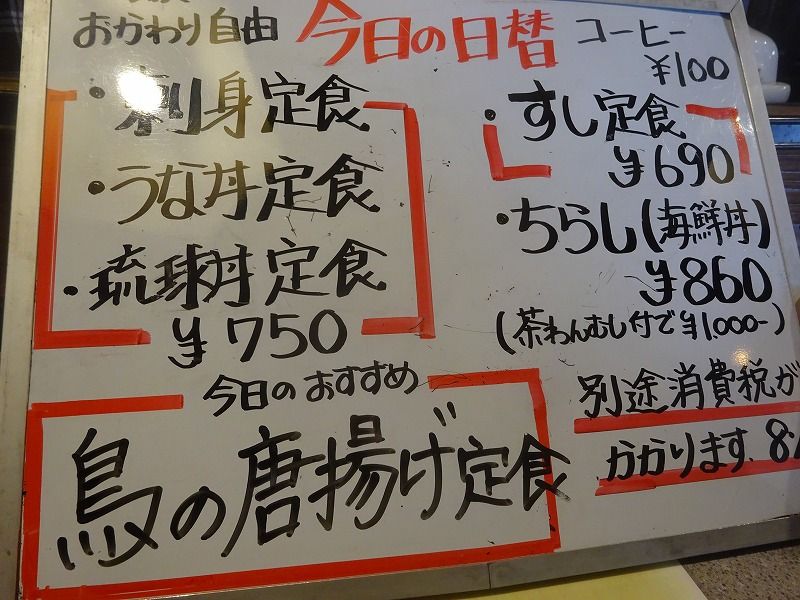 おかわり自由
今日の日替
コーヒー
¥100
・刺身定食
・うな丼定食
・琉球丼定食
¥750
・すし定食
¥690
・ちらし(海鮮丼)
¥860
(茶わんむし付で¥1,000-)
今日のおすすめ
鳥の唐揚げ定食
別途消費税が
かかります. 8.